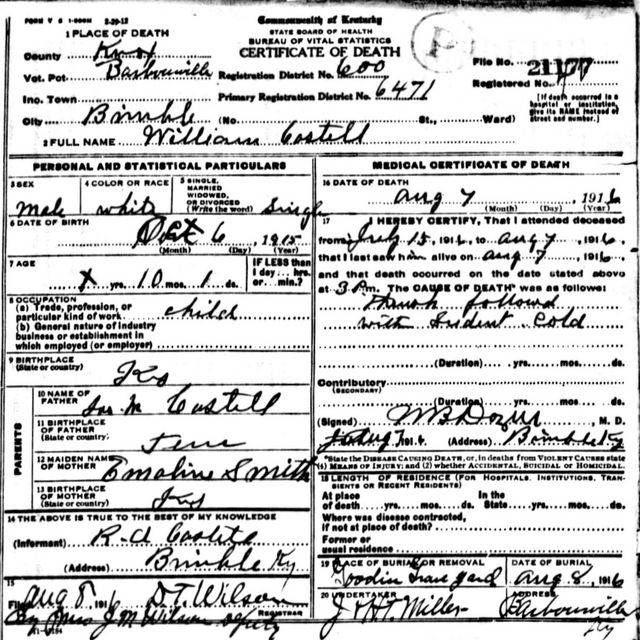 FORM V S 1-500M 5-29-12
Commonwealth of Kentucky
STATE BOARD OF HEALTH
BUREAU OF VITAL STATISTICS
CERTIFICATE OF DEATH
1 PLACE OF DEATH
County Knox
Vot. Pct Barbourville
Ino. Town
City Brimble
Registration District No. 600
Primary Registration District No. 6471
(No. St., Ward)
File No. 21177
Registered No.
[If death occurred in a hospital or institution, give its NAME instead of street and number.]
2 FULL NAME William Costell
PERSONAL AND STATISTICAL PARTICULARS
3 SEX
Male
4 COLOR OR RACE
white
5 SINGLE, MARRIED WIDOWED, OR DIVORCED (Write the word) Single
6 DATE OF BIRTH
Oct 6 1915
(Month) (Day) (Year)
7 AGE
yrs. 10 mos. 1 ds.
IF LESS than 1 day... hrs. or... min.?
8 OCCUPATION
(a) Trade, profession, or particular kind of work child
(b) General nature of industry business or establishment in which employed (or employer)
9 BIRTHPLACE
(State or country) Ky
PARENTS
10 NAME OF FATHER Jas M Costell
11 BIRTHPLACE OF FATHER (State or country) Tenn
12 MAIDEN NAME OF MOTHER Emaline Smith
13 BIRTHPLACE OF MOTHER (State or country) Ky
14 THE ABOVE IS TRUE TO THE BEST OF MY KNOWLEDGE
(Informant) R.A
(Address) Brimble Ky
15
Filed Aug 8 1916 D.T. Wilson
REGISTRAR
By Miss J M Wilson deputy
MEDICAL CERTIFICATE OF DEATH
16 DATE OF DEATH
Aug 7 1916
(Month) (Day) (Year)
17 I HEREBY CERTIFY, That I attended deceased
from July 15, 1916, to Aug 7 1916,
that I last saw him alive on Aug 7 1916,
and that death occurred on the date stated above
at 3 P.m. The CAUSE OF DEATH* was as follows:
followed
with cold
(Duration) yrs. mos. ds.
Contributory
(SECONDARY)
(Duration) yrs. mos. ds.
(Signed) M. D.
Aug 7 1916 (Address) Brimble Ky
*State the DISEASES CAUSING DEATH, or, in deaths from VIOLENT CAUSES state (1) MEANS OF INJURY; and (2) whether ACCIDENTAL, SUICIDAL or HOMICIDAL.
18 LENGTH OF RESIDENCE (FOR HOSPITALS, INSTITUTIONS, TRANSIENTS OR RECENT RESIDENTS)
At place of death yrs. mos. ds. In the State yrs. mos. ds.
Where was disease contracted, if not at place of death?
Former or usual residence
19 PLACE OF BURIAL OR REMOVAL
Goodin Graveyard
DATE OF BURIAL
Aug 8, 1916
20 UNDERTAKER
J & H.T. Miller
ADDRESS
Barbourville Ky